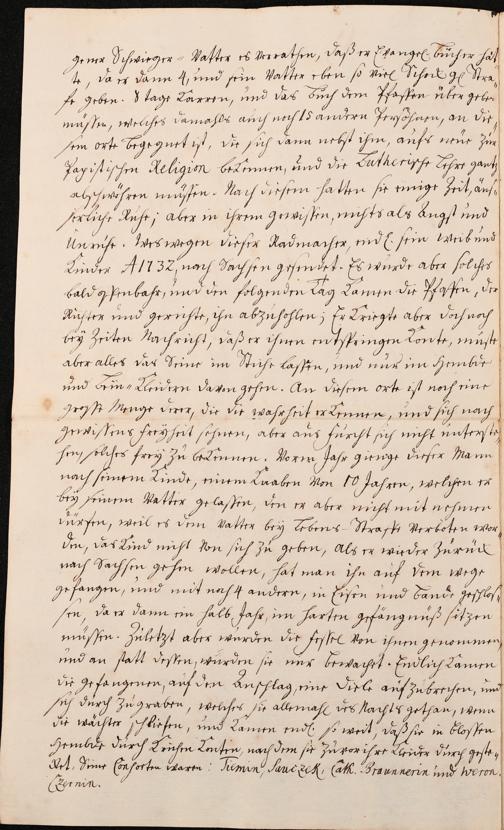 gener Schwieger-Vatter es verrathen, daß er Evangel. bücher hät
te, da er dann 4, und sein Vatter eben so viel Schock gl Stra-
fe geben. 8 tage Karren, und das buch dem Pfaffen über geben
müssen, welches damahls auch noch 15 andern Persohnen, an die-
sem orte begegnet ist, die sich dann nebst ihm, aufs neue zur
Papistischen Religion bekennen, und die Lutherische Lehre gantz
abschwöhren müssen. Nach diesem hatten sie einige Zeit, äus-
serliche Ruhe; aber in ihrem gewissen, nichts als Angst und
Unruhe. Weswegen dieser Radmacher, endl. sein weib und
Kinder A 1732, nach Sachsen gesendet. Es wurde aber solches
bald offenbahr, und den folgenden Tag kamen die Pfaffen, der
Richter und gerichte, ihn abzuhohlen; Er kriegte aber doch noch
bey Zeiten Nachricht, daß er ihnen entspringen konte, muste
aber alles das Seine im Stiche lassen, und nur im Hembde
und bein-Kleidern davon gehen. An diesem orte ist noch eine
grosse Menge derer, die die warheit erkennen, und sich nach
gewissens freyheit sehnen, aber aus furcht sich nicht unterste-
hen, solches frey zu bekennen. Vorm Jahr gienge dieser Mann
nach seinem Kinde, einem Knaben von 10 Jahren, welchen er
bey seinem Vatter gelassen, den er aber nicht mit nehmen
dürfen, weil es dem Vatter bey Lebens-Straffe verboten wor-
den, das Kind nicht von sich zu geben, als er wieder zurück
nach Sachsen gehen wollen, hat man ihn auf dem wege
gefangen, und mit noch 4 andern, in Eisen und bande geschlos-
sen, da er dann ein halb Jahr, im harten gefängnüß sitzen
müssen. Zuletzt aber wurden die fessel von ihnen genommen,
und an statt dessen, wurden sie nur bewachet. Endlich kamen
die gefangenen, auf den Anschlag, eine Diele auf zubrechen, und
sich durch zugraben, welches sie allemahl des Nachts gethan, wenn
die wächter schliefen, und kamen endl. so weit, daß sie in blossen
Hembde durch kriechen konten, nachdem sie zuvor ihre kleider durch geste-
ket. Seine Consorten waren: Tiemin, Sauczek, Cath. Braunnerin und Weron.
Czernin.